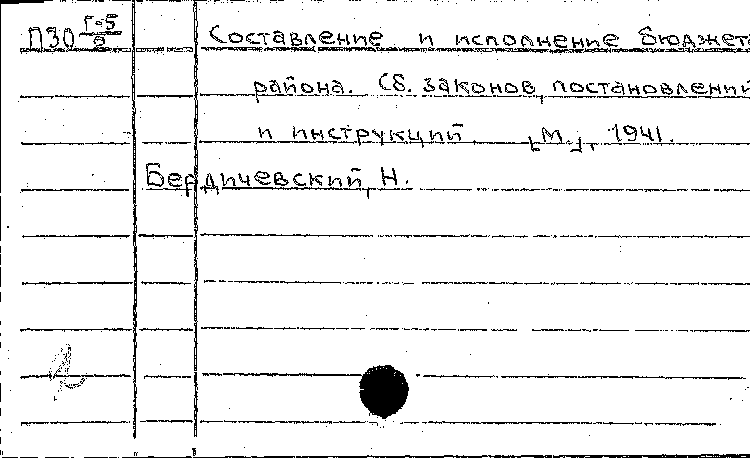 П30 Г-5/8 Составление и исполнение бюджет
района. Сб. законов, постановлений
и инструкций. [М.], 1941.
Бердичевский, Н.